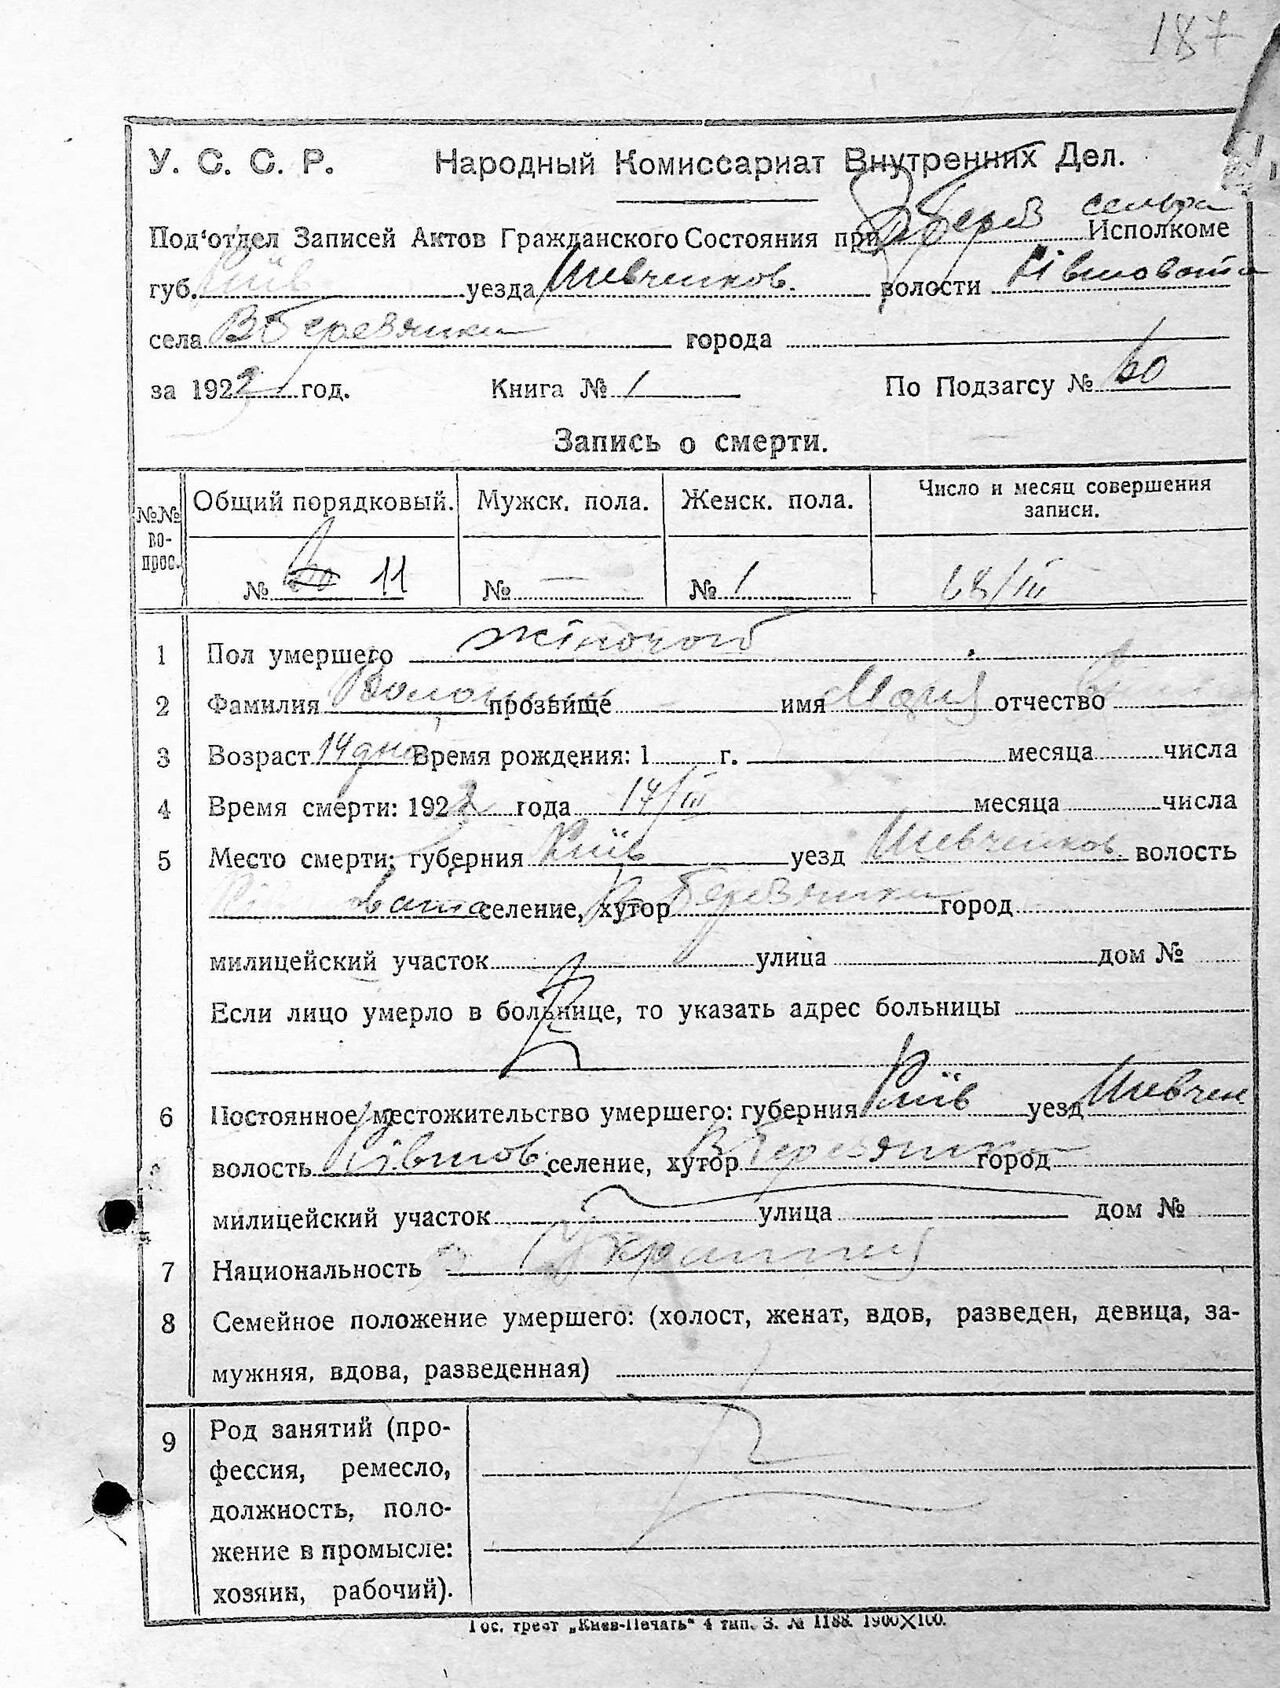 187
У. С. С. Р. Народный Комиссариат Внутренних Дел.
Под'отдел Записей Актов Гражданского Состояния при Исполкоме
губ. Київ уезда Шевченков. волости
села В Березянки города
за 1922 год. Книга № 1 По Подзагсу № 60
Запись о смерти.
№№ вопрос. Общий порядковый. Мужск. пола. Женск. пола. Число и месяц совершения записи.
№ 11 № — № 1
1 Пол умершего жіночого
2 Фамилия прозвище имя Марія отчество
3 Возраст 14 днів Время рождения: 1 г. месяца числа
4 Время смерти: 192 года 17/III месяца числа
5 Место смерти: губерния Київ уезд Шевченков. волость
селение, хутор В Березянки город
милицейский участок улица дом №
Если лицо умерло в больнице, то указать адрес больницы
6 Постоянное местожительство умершего: губерния Київ уезд Шевчен
волость селение, хутор В Березянки город
милицейский участок улица дом №
7 Национальность
8 Семейное положение умершего: (холост, женат, вдов, разведен, девица, за-
мужняя, вдова, разведенная)
9 Род занятий (про-
фессия, ремесло,
должность, поло-
жение в промысле:
хозяин, рабочий).
Гос. трест „Киев-Печать" 4 тип. З. № 1188. 1900×100.